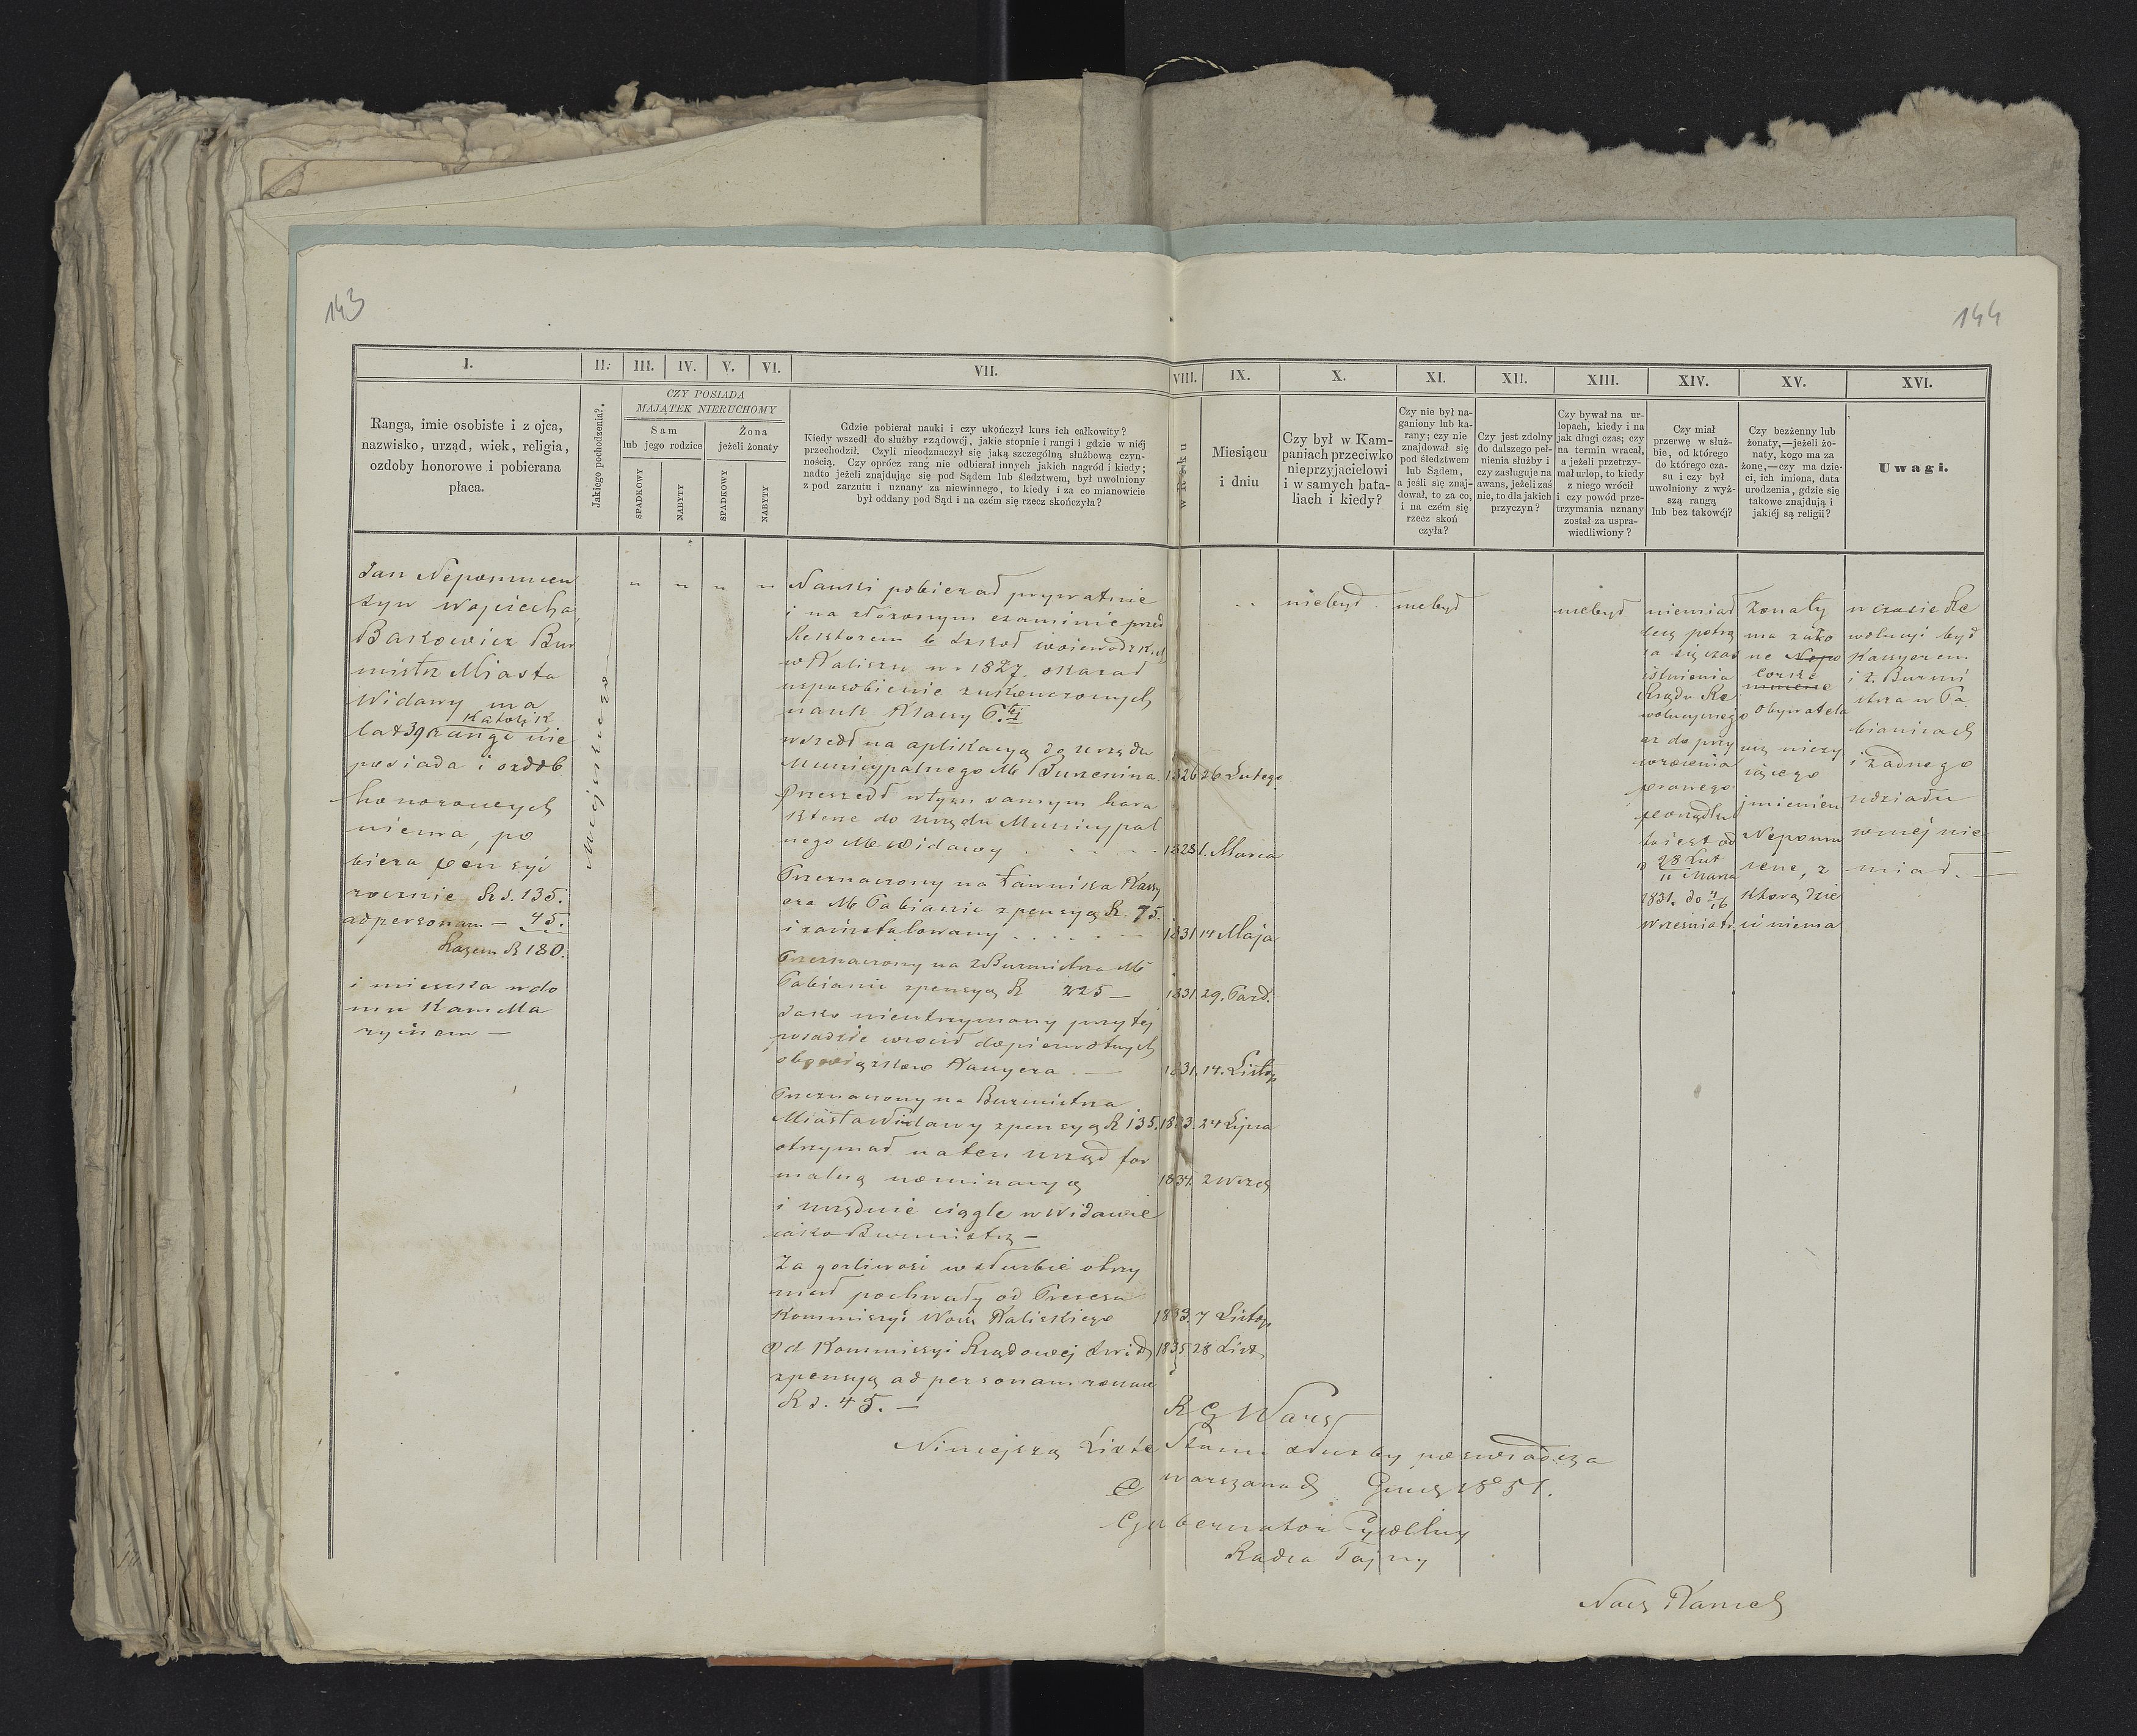 143
144
I.
II.
III.
IV.
V.
VI.
VII.
VIII.
IX.
X.
XI.
XII.
XIII.
XIV.
XV.
XVI.
Ranga, imie osobiste i z ojca,
nazwisko, urząd, wiek, religia,
ozdoby honorowe i pobierana
płaca.
Jakiego pochodzenia?
CZY POSIADA
MAJĄTEK NIERUCHOMY
Sam
lub jego rodzice
Żona
jeżeli żonaty
SPADKOWY
NABYTY
SPADKOWY
NABYTY
Gdzie pobierał nauki i czy ukończył kurs ich całkowity?
Kiedy wszedł do służby rządowéj, jakie stopnie i rangi i gdzie w niéj
przechodził. Czyli nieodznaczył się jaką szczególną służbową czyn-
nością. Czy oprócz rang nie odbierał innych jakich nagród i kiedy;
nadto jeżeli znajdując się pod Sądem lub śledztwem, był uwolniony
z pod zarzutu i uznany za niewinnego, to kiedy i za co mianowicie
był oddany pod Sąd i na czém się rzecz skończyła?
w Roku
Miesiącu
i dniu
Czy był w Kam-
paniach przeciwko
nieprzyjacielowi
i w samych bata-
liach i kiedy?
Czy nie był na-
ganiony lub ka-
rany; czy nie
znajdował się
pod śledztwem
lub Sądem,
a jeśli się znaj-
dował, to za co,
i na czém się
rzecz skoń
czyła?
Czy jest zdolny
do dalszego peł-
nienia służby i
czy zasługuje na
awans, jeżeli zaś
nie, to dla jakich
przyczyn?
Czy bywał na ur-
lopach, kiedy i na
jak długi czas; czy
na termin wracał,
a jeżeli przetrzy-
mał urlop, to kiedy
z niego wrócił
i czy powód prze-
trzymania uznany
został za uspra-
wiedliwiony?
Czy miał
przerwę w służ-
bie, od którego
do którego cza-
su i czy był
uwolniony z wyż-
szą rangą
lub bez takowéj?
Czy bezżenny lub
żonaty,—jeżeli żo-
naty, kogo ma za
żonę,—czy ma dzie-
ci, ich imiona, data
urodzenia, gdzie się
takowe znajdują i
jakiéj są religii?
Uwagi.
Jan Nepomucen
syn Wojciecha
Bakowicz Bur
mistrz Miasta
Widawy ma
Katolik
lat 39 rangi nie
posiada i ozdób
honorowych
niema, po
biera pensyi
rocznie Rs. 135.
ad personam — 45.
Razem R 180.
i mieszka w do
mu Kamella
ryinem —
Miejskiego
" " " "
Nauki pobierał prywatnie
i na złożonym examinie przed
Rektorem b Szkół wojewódzkich
w Kaliszu w r 1827. okazał
usposobienie z ukończonych
nauk Klassy 6.tej
wszedł na aplikacyą do urzędu
Municypalnego M Burzenina 1826 26 Lutego
Przeszedł w tym samym hara
kterze do urzędu Municypal
nego M Widawy . . . . . 1828 1. Marca
Przeznaczony na Ławnika Kassy
era M Pabianic z pensyą R. 75.
i zainstalowany . . . . . 1831 14 Maja
Przeznaczony na z Burmistrza M
Pabianic z pensyą R 225 — 1831 29. Pazd.
Jako nieutrzymany przy tej
posadzie wrócił do pierwotnych
obowiązków Kassyera — 1831. 14. Listop
Przeznaczony na Burmistrza
Miasta Widawy z pensyą R 135. 1833. 24 Lipca
otrzymał na ten urząd for
malną nominacyą 1834. 2 Wrzes
i urzęduie ciągle w Widawie
jako Burmistrz —
Za gorliwość w służbie otrzy
mał pochwały od Prezesa
Kommissyi Woie Kaliskiego 1833. 7 Listop
Od Kommissyi Rządowej SWiD 1835. 28 List
z pensyą ad personam roczne
Rs. 45. —
niebył
niebył
niebył
niemiał
lecz potrą
ca się czas
istnienia
Rządu Re
wolucyjnego
aż do przy
wrócenia
prawego
porządku
to iest od
28 Lut
11 Marca
1831. do 4/16
Września tr.
żonaty
ma za żo
nę Nepo
córkę
mucenę
Obywatela
jmieniem
Nepomu
cenę, z
którą dzie
ci niema
w czasie Re
wolucyi był
Kassyerem
i z. Burmi
strza w Pa
bianicach
i żadnego
udziału
w niéj nie
miał. —
R G Warsz
Niniejszą Listę Stanu służby poświadcza
w Warszawie d Grud 1851.
Gubernator Cywilny
Radca Tajny